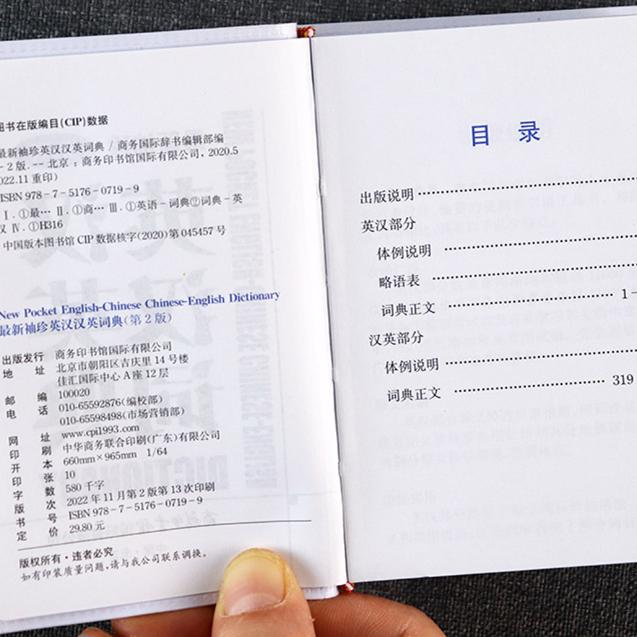 图书在版编目(CIP)数据
最新袖珍英汉汉英词典 / 商务国际辞书编辑部编
-2版. -- 北京:商务印书馆国际有限公司,2020.5
2022.11重印)
ISBN 978-7-5176-0719-9
Ⅰ.①最… Ⅱ.①商… Ⅲ.①英语-词典②词典-英
汉 Ⅳ.①H316
中国版本图书馆CIP数据核字(2020)第045457号
New Pocket English-Chinese Chinese-English Dictionary
最新袖珍英汉汉英词典(第2版)
出版发行 商务印书馆国际有限公司
地址 北京市朝阳区吉庆里14号楼
佳汇国际中心A座12层
邮编 100020
电话 010-65592876(编校部)
010-65598498(市场营销部)
网址 www.cpi1993.com
印刷 中华商务联合印刷(广东)有限公司
开本 660mm×965mm 1/64
印张 10
字数 580千字
版次 2022年11月第2版第13次印刷
书号 ISBN 978-7-5176-0719-9
定价 29.80元
版权所有·违者必究
如有印装质量问题,请与我公司联系调换。
目 录
出版说明
英汉部分
体例说明
略语表
词典正文 1-
汉英部分
体例说明
词典正文 319